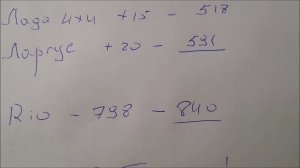 Лада 4х4 +15 - 518
Ларгус +20 - 591
Rio - 798 - 840